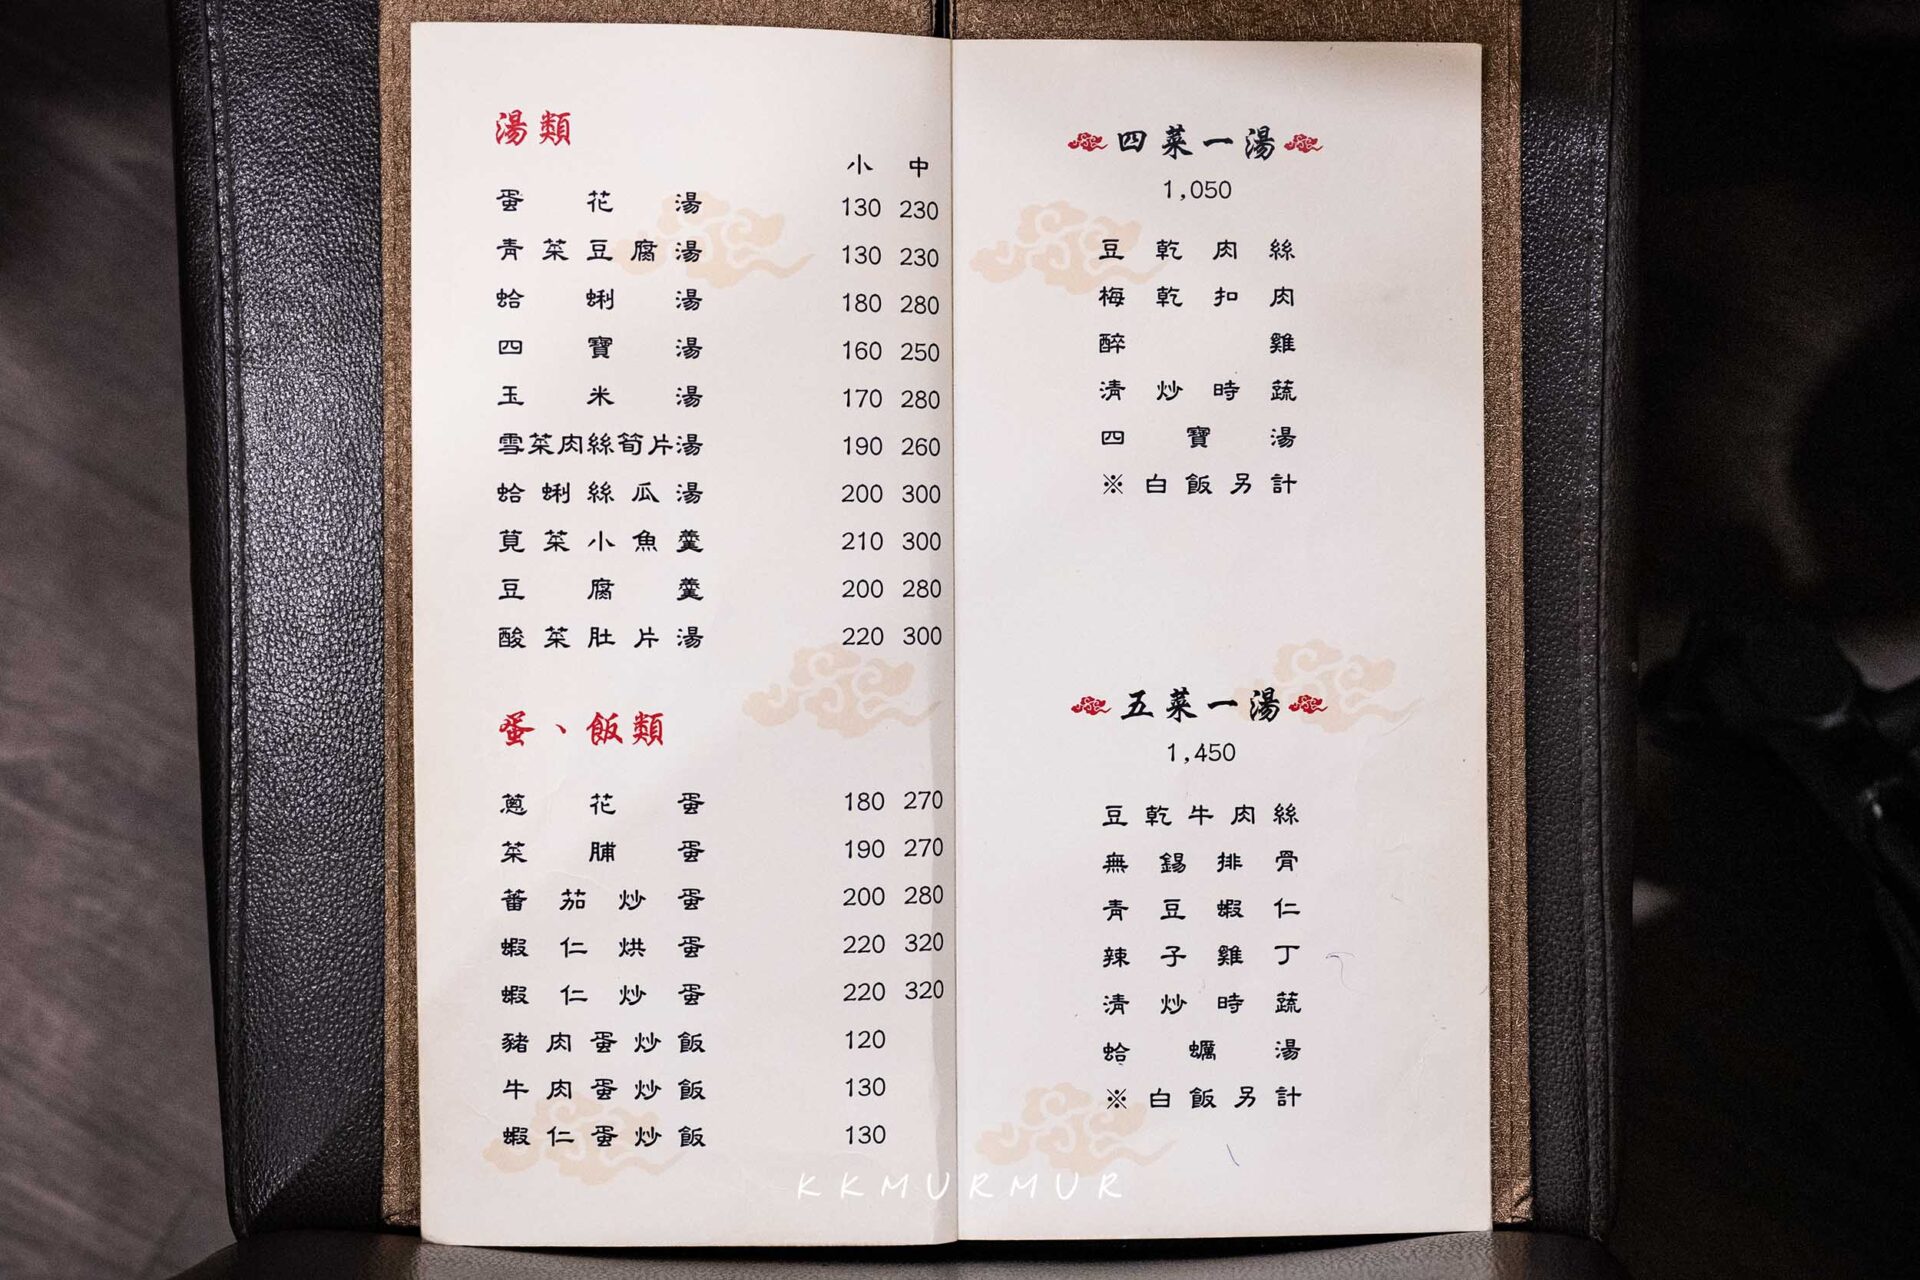 湯類
小 中
蛋花湯 130 230
青菜豆腐湯 130 230
蛤蜊湯 180 280
四寶湯 160 250
玉米湯 170 280
雪菜肉絲筍片湯 190 260
蛤蜊絲瓜湯 200 300
莧菜小魚羹 210 300
豆腐羹 200 280
酸菜肚片湯 220 300
蛋、飯類
蔥花蛋 180 270
菜脯蛋 190 270
蕃茄炒蛋 200 280
蝦仁烘蛋 220 320
蝦仁炒蛋 220 320
豬肉蛋炒飯 120
牛肉蛋炒飯 130
蝦仁蛋炒飯 130
四菜一湯
1,050
豆乾肉絲
梅乾扣肉
醉雞
清炒時蔬
四寶湯
※白飯另計
五菜一湯
1,450
豆乾牛肉絲
無錫排骨
青豆蝦仁
辣子雞丁
清炒時蔬
蛤蠣湯
※白飯另計
KKMURMUR